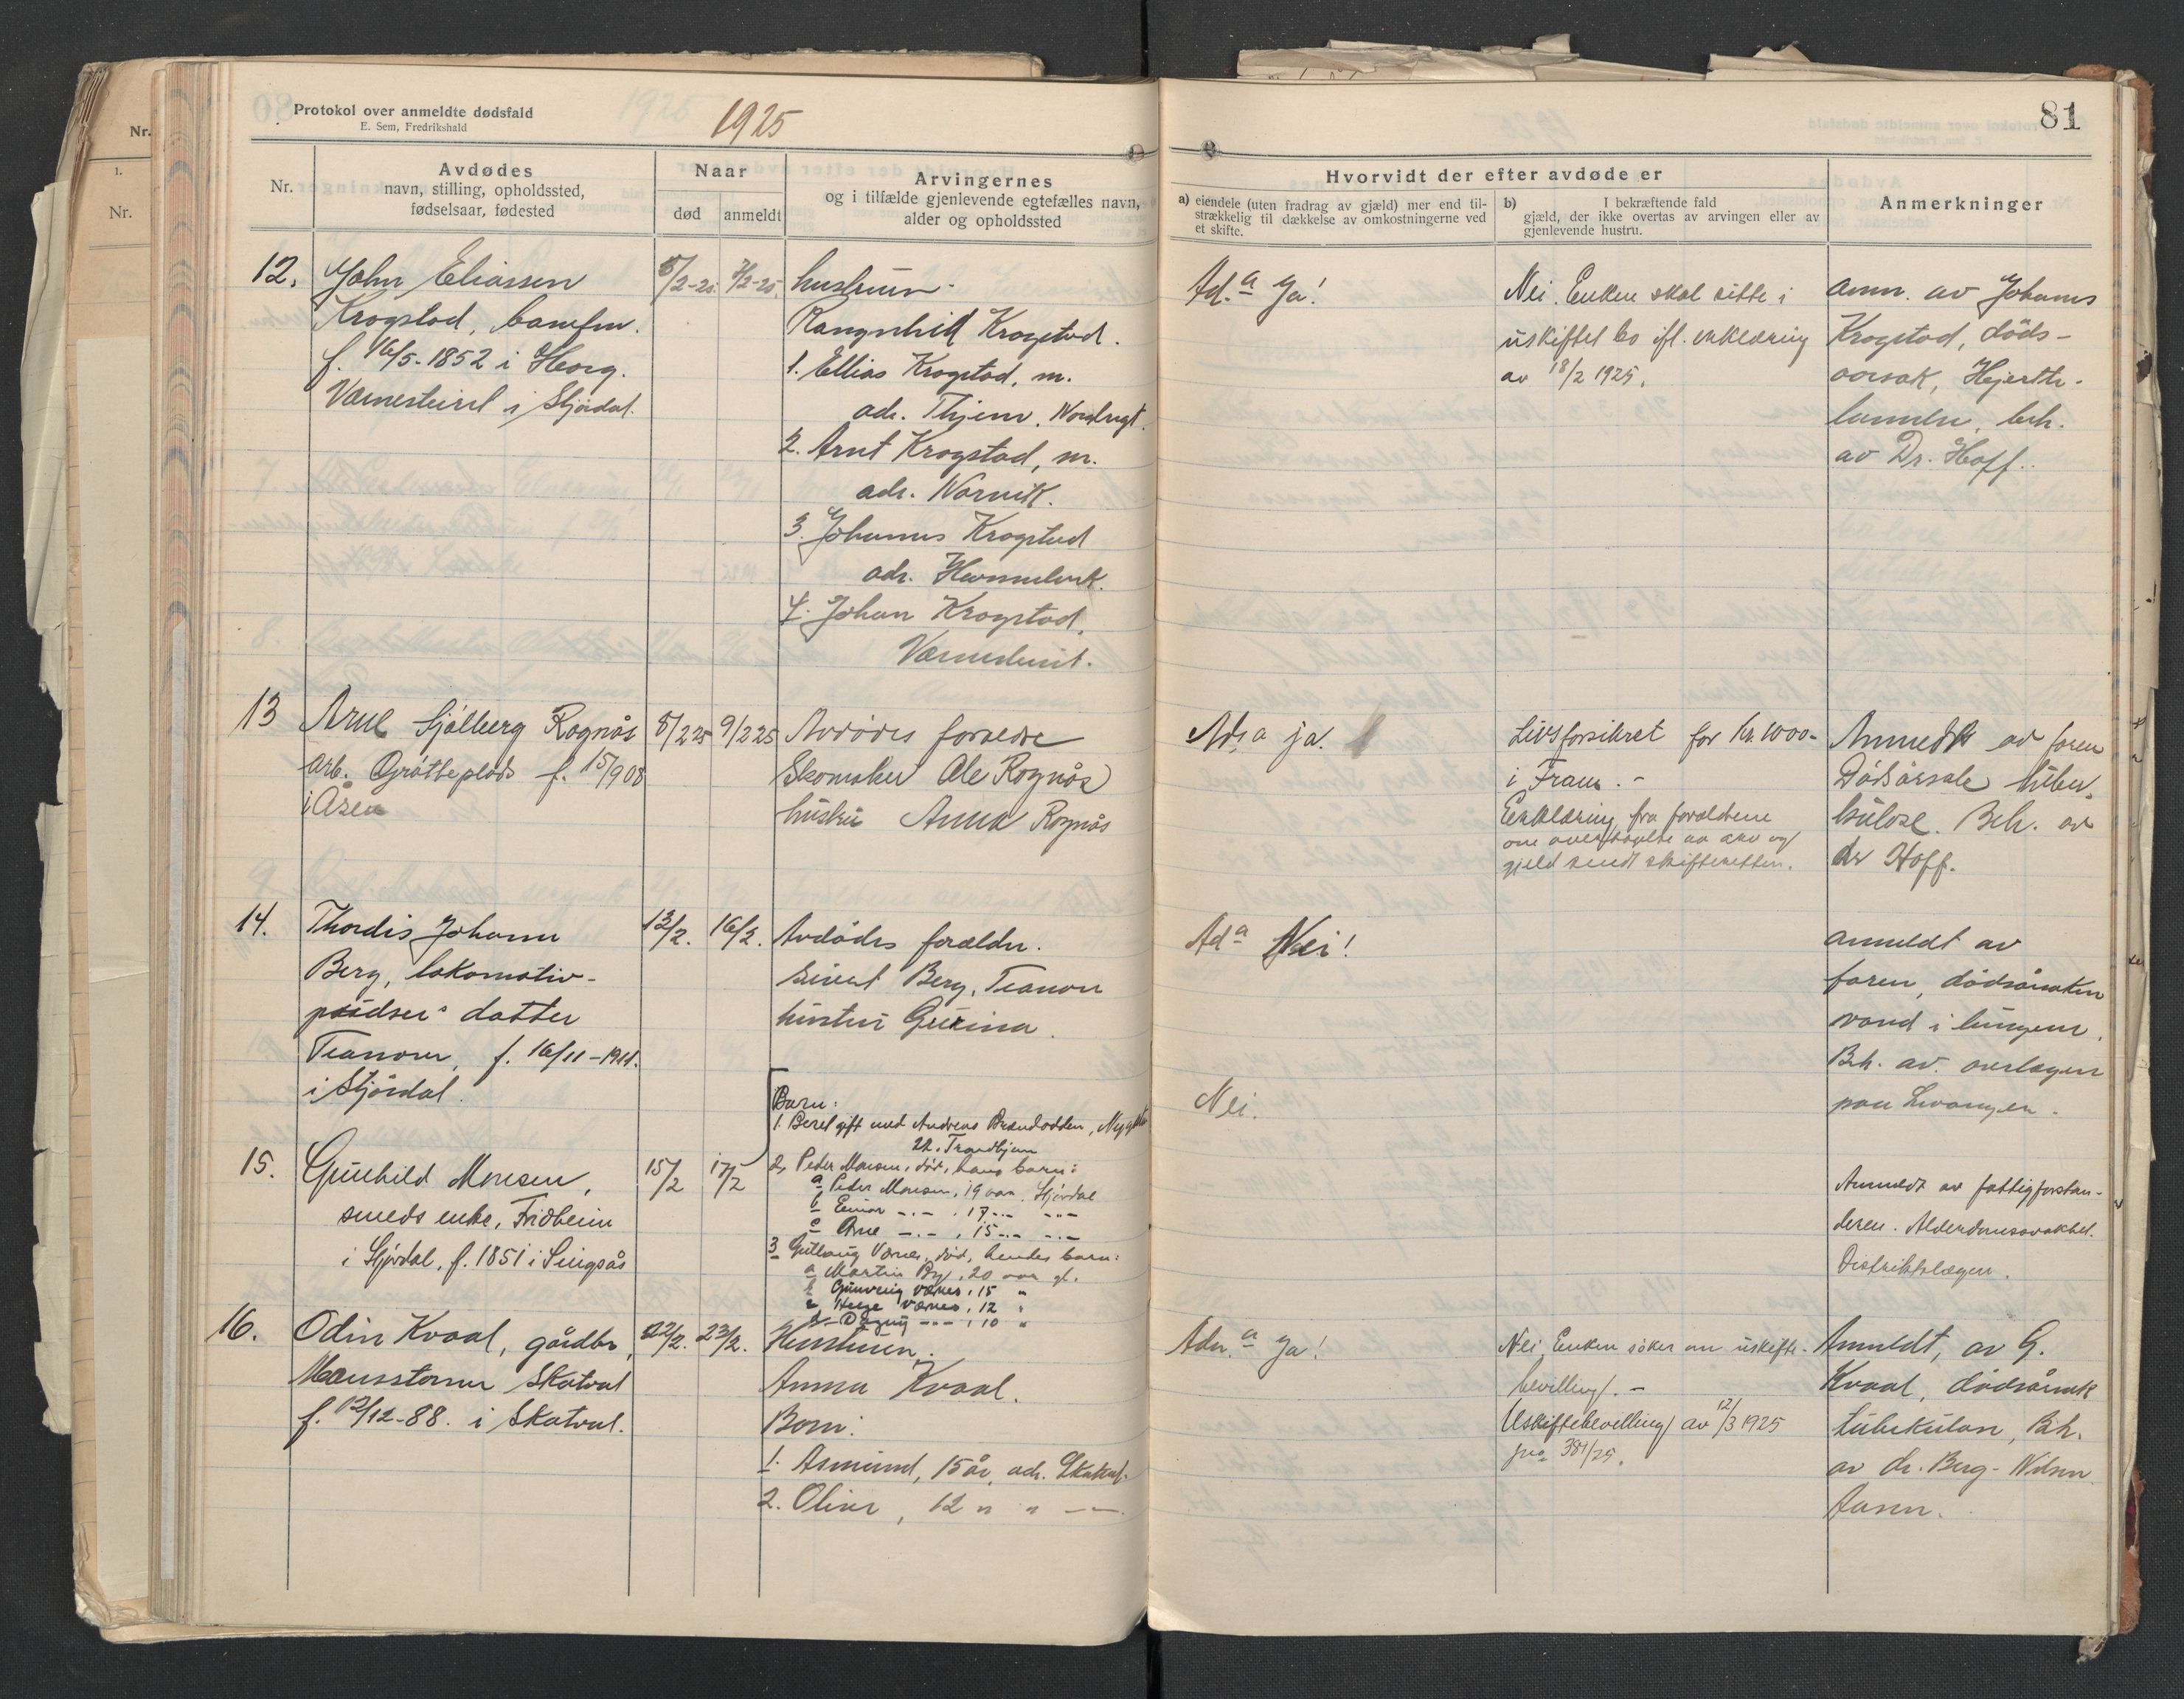 Protokol over anmeldte dødsfald
E. Sem, Fredrikshald
1925
81
Nr.
1.
Nr.
Nr.
Avdødes
navn, stilling, opholdssted,
fødselsaar, fødested
Naar
død
anmeldt
Arvingernes
og i tilfælde gjenlevende egtefælles navn,
alder og opholdssted
Hvorvidt der efter avdøde er
a) eiendele (uten fradrag av gjæld) mer end til-
strækkelig til dækkelse av omkostningerne ved
et skifte.
b) I bekræftende fald
gjæld, der ikke overtas av arvingen eller av
gjenlevende hustru.
Anmerkninger
12.
John Eliassen
Krogstad, banefm.
f. 16/5-1852 i Horg.
i Stjørdal.
5/2-25. 7/2-25.
hustruen
Rangnhild Krogstad.
1. Ellias Krogstad, m.
adr. Thjem,
2. Arnt Krogstad, m.
adr. Narvik.
3. Johannes Krogstad
adr. Hommelvik.
4. Johan Krogstad,
Ad. a Ja!
Nei. Enken skal sitte i
uskiftet bo ifl. erklæring
av 18/2 1925.
anm. av Johannes
Krogstad, døds-
aarsak, Hjerte-
lammelse, beh.
av Dr. Hoff.
13
Arne Sjølberg Rognås
arb. Gråtteplads f. 15/9 08
i Åsen
8/2 25 9/2 25
Avdødes forældre
Skomaker Ole Rognås
hustru Anna Rognås
Ad. a ja.
Livsforsikret for kr. 1000-
i Fram. -
Erklæring fra forældrene
om overtagelse av arv og
gjeld sendt skifteretten.
Anmeldt av faren
Dødsårsak tuber-
kulose. Beh. av
dr Hoff.
14.
Thordis Johanna
Berg, lokomotiv-
pudser datter
Tranoen, f. 16/11-1924.
i Stjørdal.
13/2. 16/2.
Avdødes forældre.
Sivert Berg, Tranoen
hustru Gurina.
Ad a Nei!
anmeldt av
faren, dødsårsaken
vand i lungene.
Beh. av overlægen
paa Levanger.
15.
Gunhild Monsen,
smeds enke, Fridheim
i Stjørdal, f. 1851 i Singsås
15/2 17/2
Barn:
1. Beret gift med Andreas Brandodden,
Trondhjem
2. Peder Monsen, død, hans barn:
a, Peder Monsen, 19 aar. Stjørdal
b Einar -.- , 17 -.- -.-
c Arne -.- , 15 -.- -.-
3 Gutlaug Værnes, død, hendes barn:
a, Martin By, 20 aar gl.
b Gunvreig Værnes, 15 "
c, Helge Værnes, 12 "
d Dagny -.- , 10 "
Nei.
Anmeldt av fattigforstan-
deren. Alderdomssvakhet.
Distriktslægen.
16.
Odin Kvaal, gårdbr,
Mausstomoen Skatval
f. 12/12-88. i Skatval.
22/2. 23/2.
Hustruen.
Anna Kvaal.
Barn:
1. Asmund, 15 år, adr. Skatval.
2. Oliver, 12 " " -.-
Adn. a Ja!
Nei. Enken søker om uskifte-
bevilling. -
Uskiftebevilling av 12/3 1925
381/25.
Anmeldt, av G.
Kvaal, dødsårsak
tuberkulose, Beh.
av dr. Berg-Nilsen
Aasen.